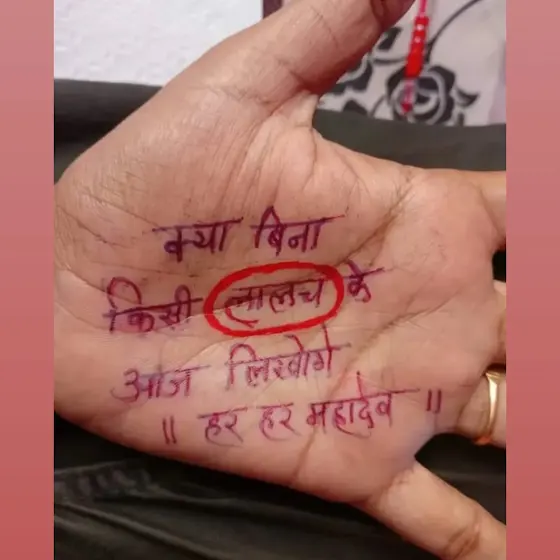 क्या बिना
किसी लालच के
आज लिखोगे
॥ हर हर महादेव ॥